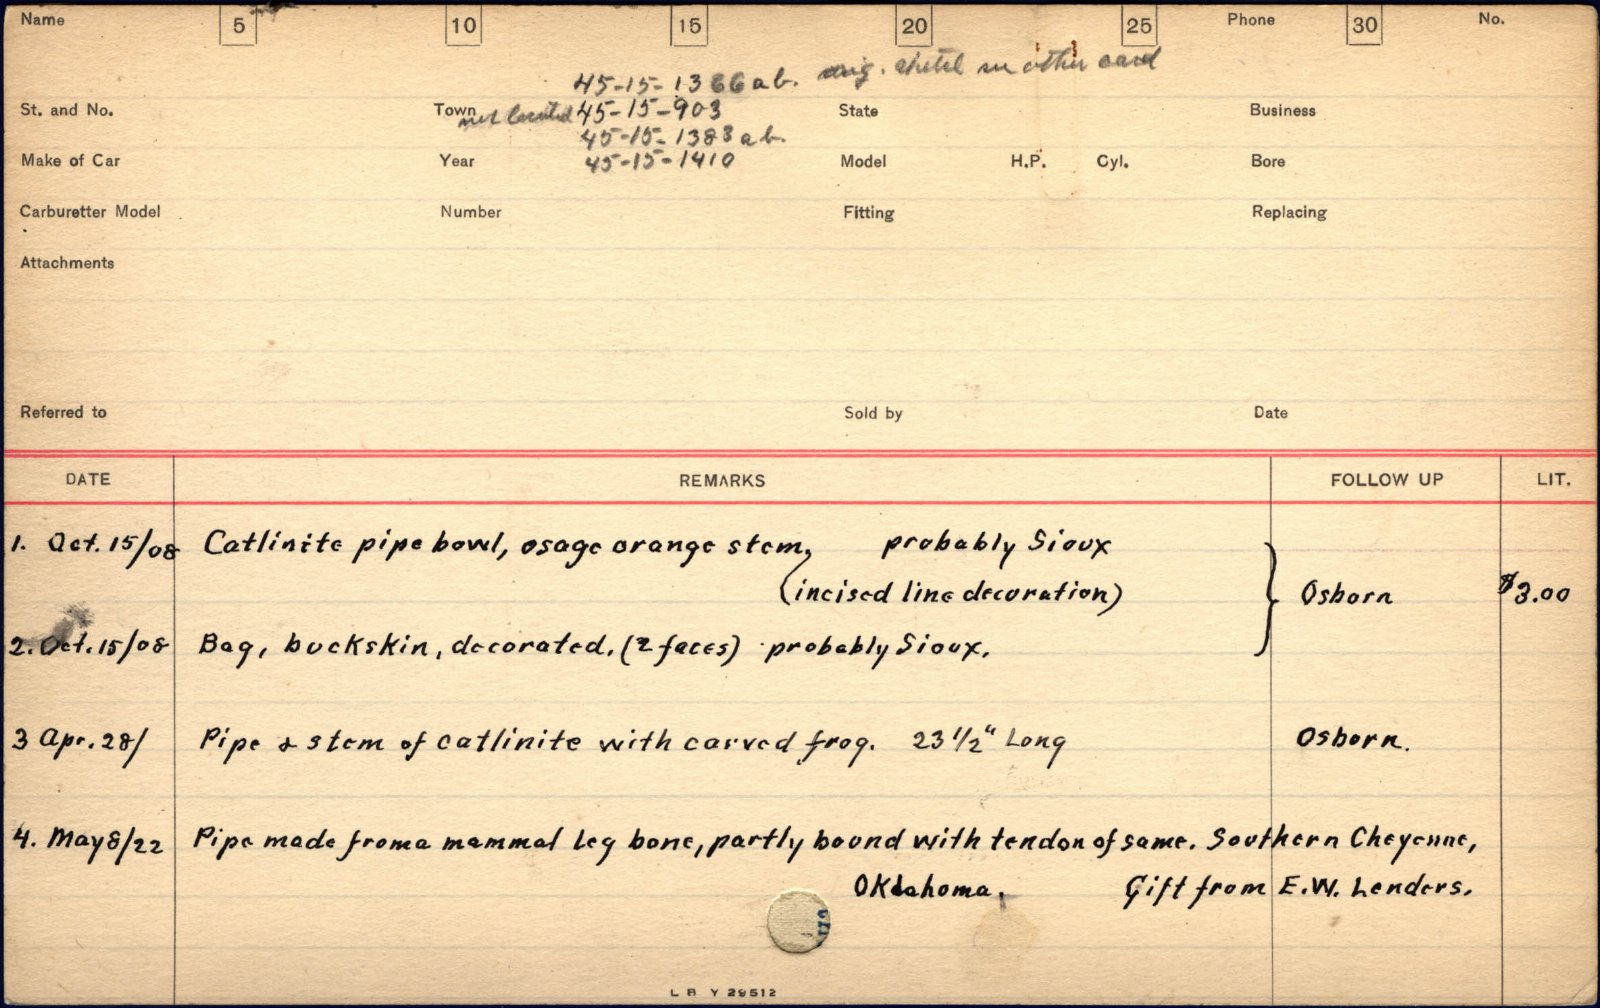 Name 5 10 15 20 25 Phone 30 No.
45-15-1366ab. orig. sketch on other card
St. and No. Town not located 45-15-903 State Business
45-15-1383ab.
Make of Car Year 45-15-1410 Model H.P. Cyl. Bore
Carburetter Model Number Fitting Replacing
Attachments
Referred to Sold by Date
DATE REMARKS FOLLOW UP LIT.
1. Oct. 15/08 Catlinite pipe bowl, osage orange stem, probably Sioux
(incised line decoration) Osborn $3.00
2. Oct. 15/08 Bag, buckskin, decorated. (2 faces) probably Sioux.
3 Apr. 28/ Pipe & stem of catlinite with carved frog. 23 1/2" Long Osborn.
4. May 8/22 Pipe made from a mammal leg bone, partly bound with tendon of same. Southern Cheyenne,
Oklahoma. Gift from E.W. Lenders.
L B Y 29512